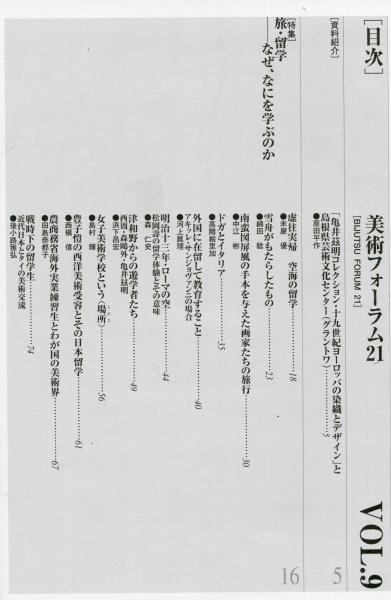 [目次]
美術フォーラム21
[BIJUTSU FORUM 21]
VOL.9
[資料紹介]
5
「亀井茲明コレクション・十九世紀ヨーロッパの染織とデザイン」と
島根県芸術文化センター(グラントワ)……5
●原田平作
[特集]
旅・留学
なぜ、なにを学ぶのか
16
虚往実帰 空海の留学……18
●米屋 優
雪舟がもたらしたもの……23
●綿田 稔
南蛮図屏風の手本を与えた画家たちの旅行……30
●中江 彬
ドガとイタリア……35
●高階絵里加
外国に在留して教育すること……40
アキッレ・サンジョヴァンニの場合
●河上眞理
明治十二年・ローマの空……44
松岡壽の留学体験とその意味
●森 仁史
津和野からの遊学者たち……49
西周・森鷗外・亀井茲明
●浜下昌宏
女子美術学校という〈場所〉……56
●島村 輝
豊子愷の西洋美術受容とその日本留学……61
●西槇 偉
農商務省海外実業練習生とわが国の美術界……67
●田島奈都子
戦時下の留学生……74
近代日本とタイの美術交流
●後小路雅弘